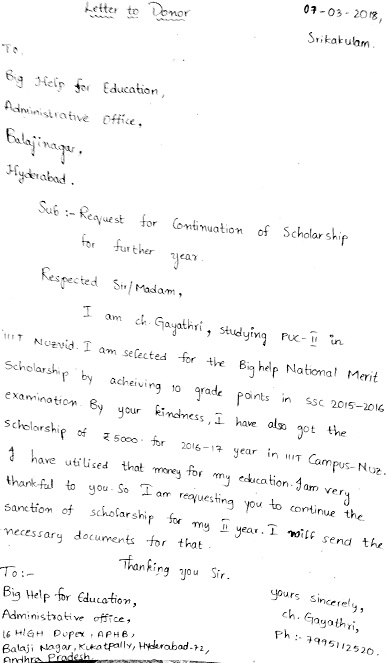 Letter to Donor
07-03-2018,
Srikakulam.
To.
Big Help for Education,
Administrative Office,
Balajinagar,
Hyderabad.
Sub :- Request for Continuation of Scholarship
for further year.
Respected Sir/Madam,
I am ch. Gayathri, studying PUC-II in
IIIT Nuzvid. I am selected for the Big help National Merit
Scholarship by acheiving 10 grade points in SSC 2015-2016
examination. By your kindness, I have also got the
scholarship of ₹5000. for 2016-17 year in IIIT Campus-Nuz.
I have utilised that money for my education. I am very
thankful to you. So I am requesting you to continue the
sanction of scholarship for my II year. I will send the
necessary documents for that.
Thanking you Sir.
To:-
Big Help for Education,
Administrative office,
16 HIGH Dupex, APHB,
Balaji Nagar, Kukatpally, Hyderabad-72,
Andhra Pradesh.
yours sincerely,
ch. Gayathri,
ph :- 7995112520.